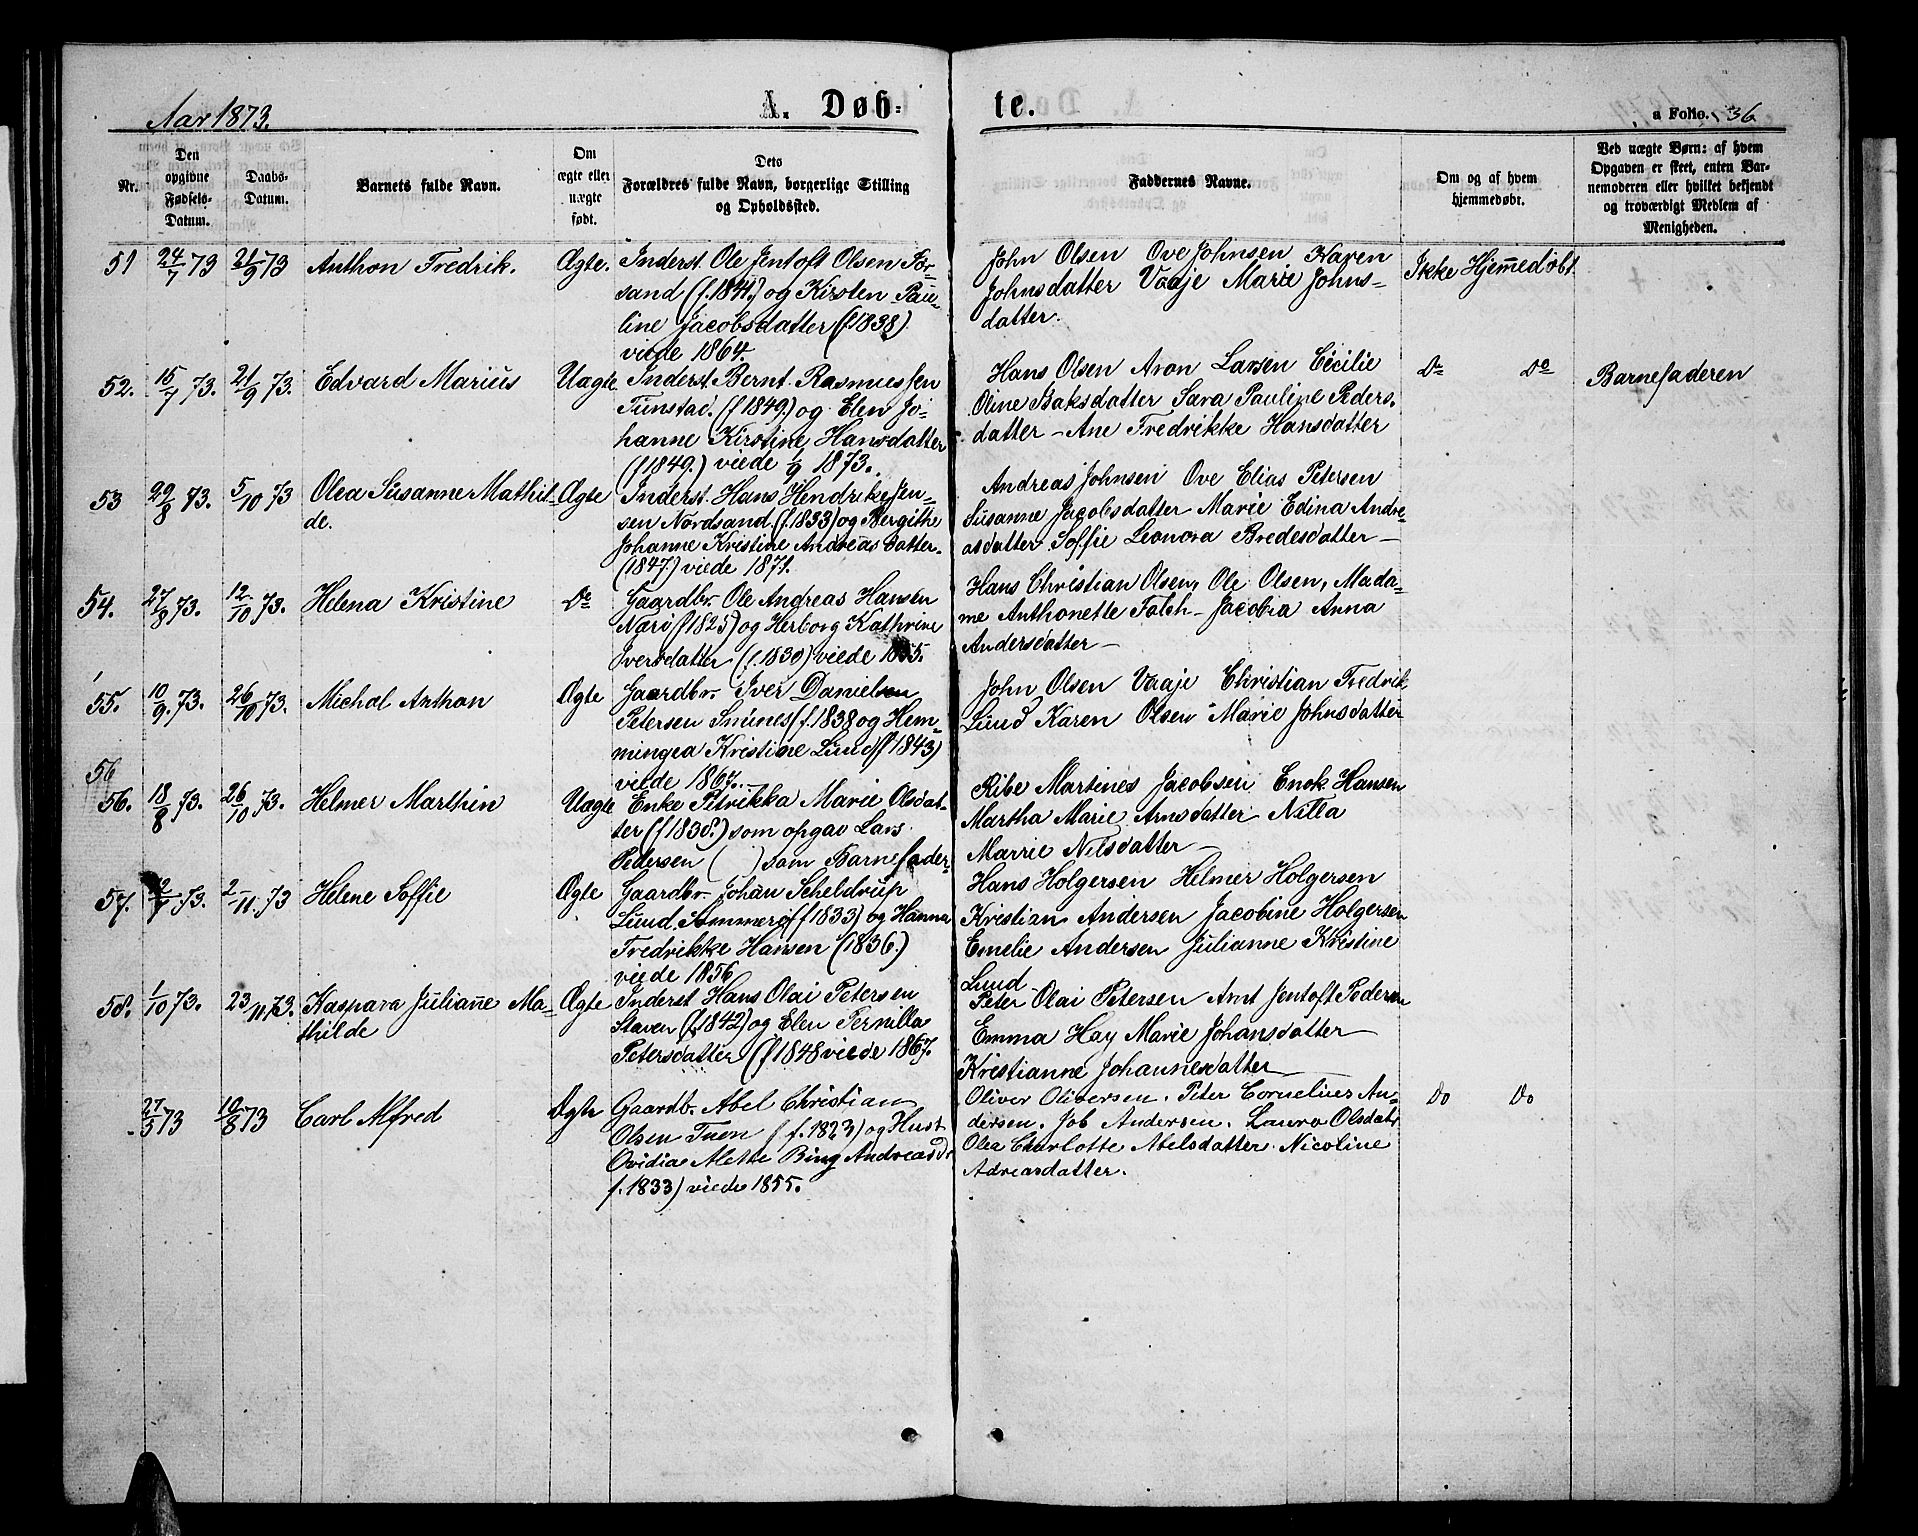 Aar 1873.
A. Døb-
te.
a Folio. 36
Nr.
Den opgivne Fødsels-Datum.
Daabs-Datum.
Barnets fulde Navn.
Om ægte eller uægte født.
Dets Forældres fulde Navn, borgerlige Stilling og Opholdssted.
Faddernes Navne.
Om og af hvem hjemmedøbt.
Ved uægte Børn: af hvem Opgaven er skeet, enten Barnemoderen eller hvilket bekjendt og troværdigt Medlem af Menigheden.
51 24/7 73 21/9 73 Anthon Fredrik. Ægte.
Inderst. Ole Jentoft Olsen For-
sand (f. 1841.) og Kirsten Pau-
line Jacobsdatter (f 1838)
viede 1864.
John Olsen Ove Johnsen Karen
Johnsdatter Vaaje Marie Johns-
datter.
Ikke Hjemmedøbt
52. 15/7 73. 21/9 73. Edvard Marius Uægte
Inderst. Bernt Rasmussen
Tunstad. (f 1849.) og Elen Jo-
hanne Kirstine Hansdatter
(f 1849.) viede 1/9 1873.
Hans Olsen Aron Larsen Cecilie
Oline Isaksdatter Sara Pauline Peders-
datter - Ane Fredrikke Hansdatter
Do Do Barnefaderen
53 29/8 73. 5/10 73 Olea Susanne Mathil-
de. Ægte
Inderst. Hans Hendrik Jen-
sen Nordsand. (f. 1833) og Bergithe
Johanne Kristine Andreasdatter.
(1847.) viede 1871.
Andreas Johnsen Ove Elias Petersen
Susanne Jacobsdatter Marie Edina Andre-
asdatter Soffie Leonora Bredesdatter -
54. 27/8 73. 12/10 73. Helena Kristine Do
Gaardbr. Ole Andreas Hansen
Narø (f 1825) og Herborg Kathrine
Iversdatter (f. 1830) viede 1855.
Hans Christian Olsen, Ole Olsen, Mada-
me Anthonette Falch - Jacobea Anna
Andersdatter -
55. 10/9. 73. 26/10 73. Michal Anthon Ægte
Gaardbr. Iver Danielsen
Petersen Snunes (f. 1838 og Hem-
mingea Kristine Lund (f 1843)
viede 1867.
John Olsen Vaaje Christian Fredrik
Lund Karen Olsen Marie Johnsdatter
56
56. 18/8 73. 26/10 73. Helmer Marthin Uægte
Enke Petrikka Marie Olsdat-
ter (f 1838.) som opgav Lars
Pedersen ( ) som Barnefader
Ribe Martines Jacobsen Enok Hansen
Martha Marie Arnsdatter Nilla
Marrie Nilsdatter -
57. 73. 2/11. 73 Helene Soffie Ægte
Gaardbr. Johan Scheldrup
Lund. Sommerø (f 1833) og Hanna
Fredrikke Hansen (1836.)
viede 1856
Hans Holgersen Helmer Holgersen
Kristian Andersen Jacobine Holgersen
Emelie Andersen Julianne Kristine
Lund -
58. 1/10 73. 23/11. 73. Kaspara Julianne Ma-
thilde Ægte
Inderst Hans Olai Petersen
Staven (f. 1842) og Elen Pernilla
Petersdatter (f 1848 viede 1867.
Peter Olai Petersen Arnt Jentoft Pedersen
Emma Hay Marie Johansdatter -
Kristianne Johannesdatter -
27/5 73 10/8 73 Carl Alfred Ægte
Gaardb. Abel Christian
Olsen Tuen ( f. 1823) og Hust
Ovidia Mette Bing Andreasd
f. 1833) viede 1855.
Oliver Olibersen. Peter Cornelius An-
dersen. Job Andersen. Laura Olsdatr
Olea Charlotte Abelsdatter Nicoline
Adreasdatter.
Do Do